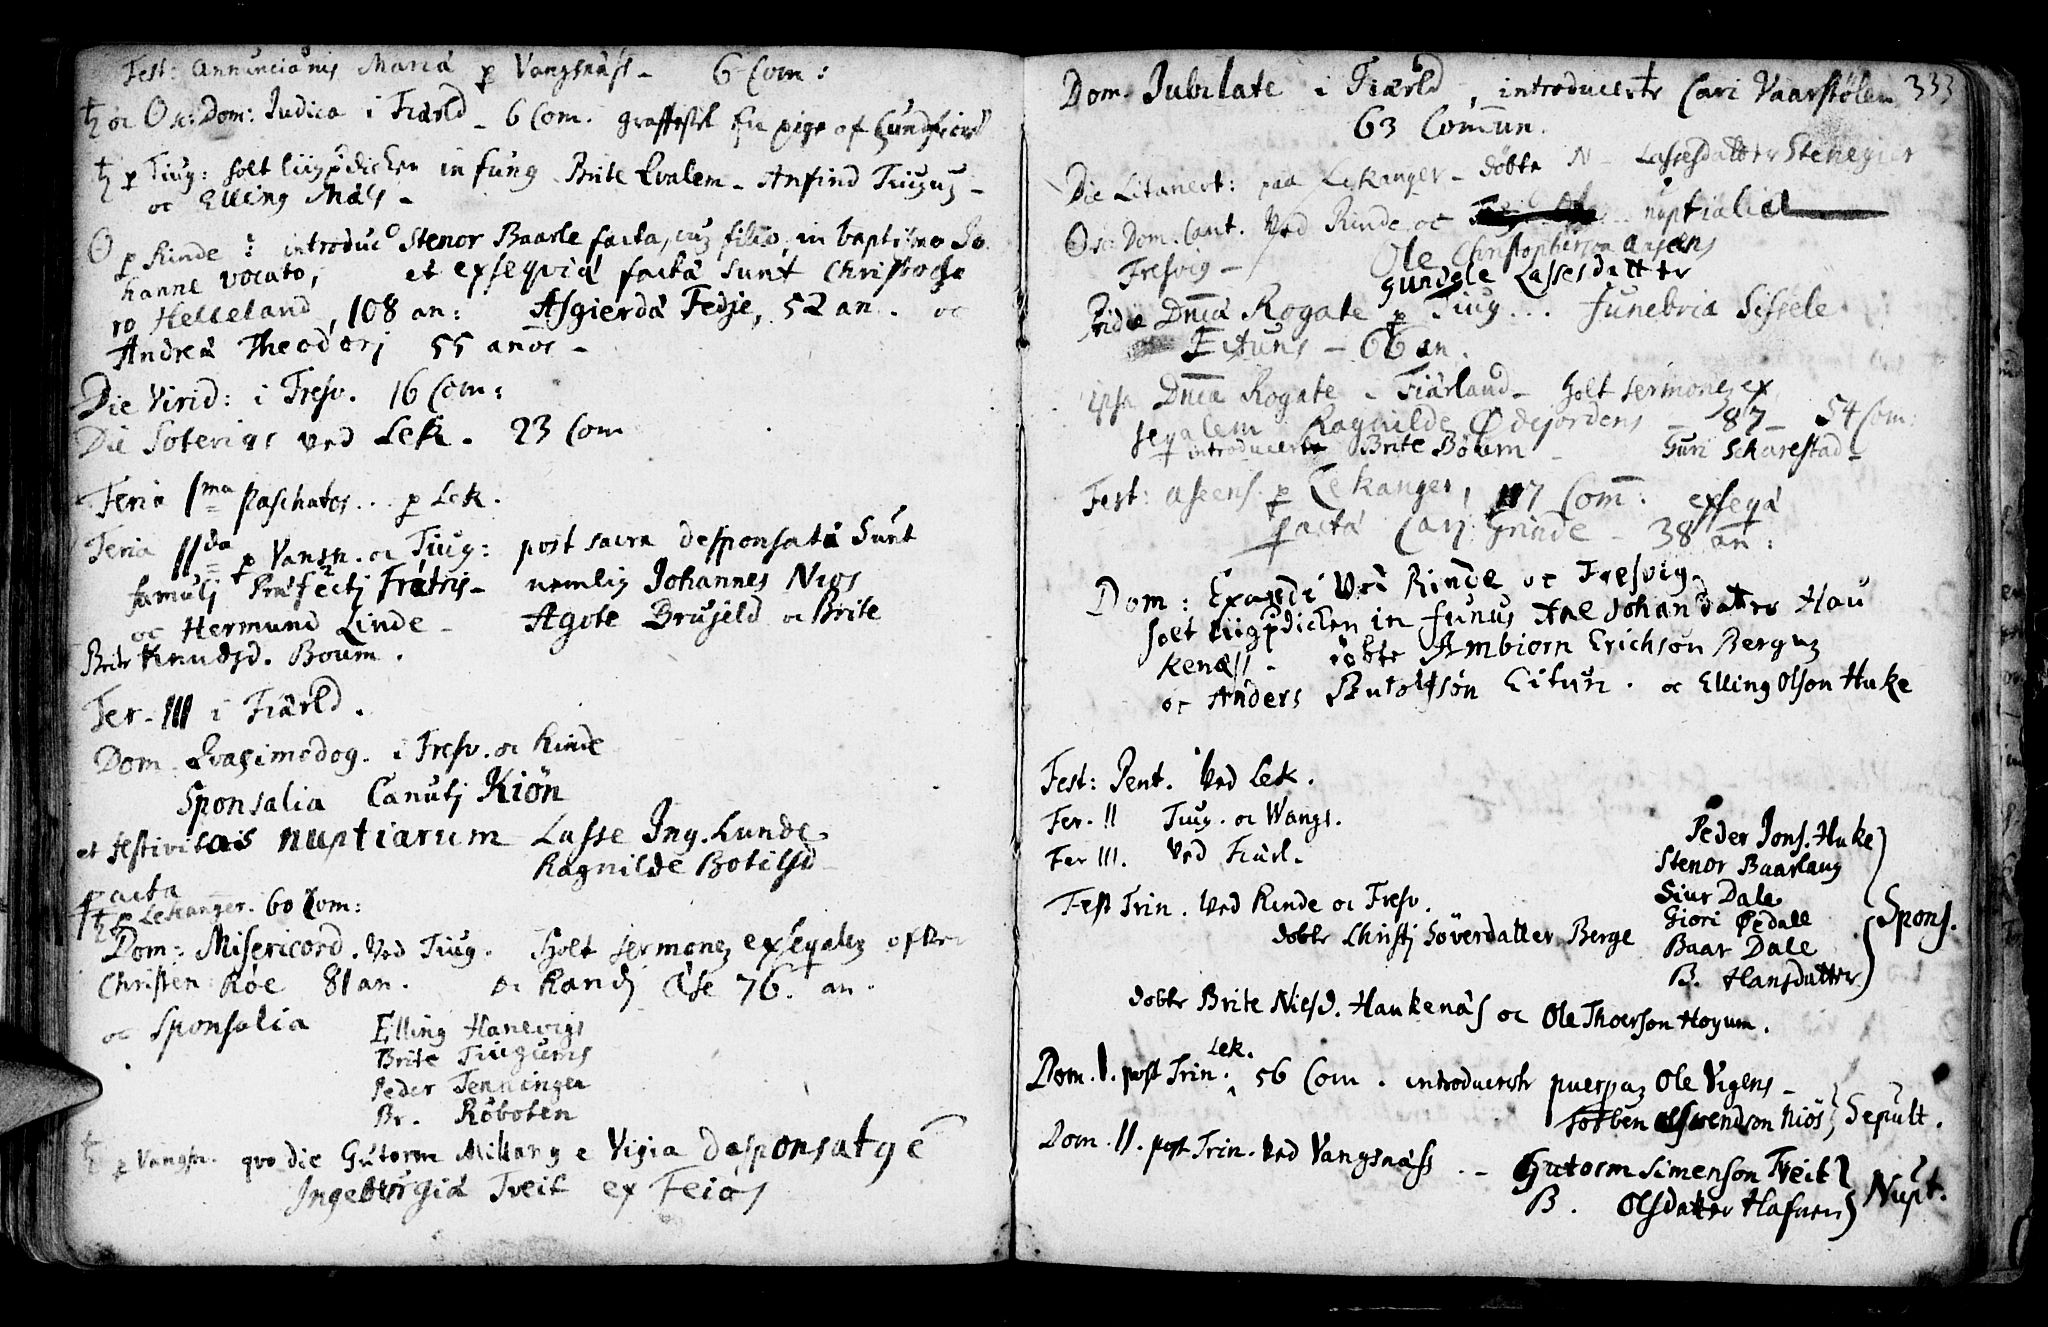 Fest: Annunciãnis Mariá p Vangsnâss - 6 Com:
♄ oc ☉ sc: Dom: Iudica i Fiærld - 6 Com. graffestet En pige of
♄ p Tiug: holt liigpdicken in fung Brite Qvalem - Anfind Tiuguz -
oc Elling Mâs -
☉ p Rinde : introduc Stenor Baarle facta, cuz filio, in baptismo Jo
hanne vocato, et exseqviá factá sunt Christopho
ro Helleland, 108 an: Asgierdá Fedje, 52 an. oc
Andreá Theodorj 55 anos -
Die Virid: i Fresv. 16 Com:
Die Soterigs ved Lek. 23 Com
Feria 1ma Paschatos.. p Lek.
Feria IIda p Vansn. oc Tiug: post sacra desponsatá sunt
famulj Præfectj Fratris - nemlig Johannes Nios
oc Hermund Linde - Agote Bruseld oc Brite
Brite Knudsd. Boum.
Fer. III i Fiærld.
Dom Qvasimodog. i Fresv. oc Rinde
Sponsalia Canutj Kiön
et festivitais nuptiarum Lasse Ing. Lunde
Ragnilde Botilsd
facta
♄ p Lekanger. 60 Com:
Dom: Misericord. ved Tiug. Holt sermonez exseqalez ofver
Christen Röe 81 an. oc Randj Ase 76. an.
oc Sponsalia Elling Hanevigs
Brite Tiugums
Peder Jenninger
Br. Röboten
♄ p Vangsn. qvo die Gutorm Millang e Vigia desponsatg ē
Ingeburgiá Tveit ex Feios
Dom. Jubilate i Fiærld, introducerte Cari Vaarstölen 333
63 Comun.
Die Litaniert: paa Lekanger - döbte N - Lassesdatter Stenegier
☉ sc: Dom. Cant. ved Rinde oc nuptialia
Fresvig - Ole Christopherson
Gundele Lassesdatter
Pridie Dnicá Rogate p Tiug... funebria Sissele
Eituns - 66 an.
ipsa Dnica Rogate - Fiärland - Holt sermonez ex
seqalem Ragnilde Ødejordens - 87 - 54 Com:
introducerte Brite Böum - Guri Scharestad -
Fest: ascens. p Lekanger, 117 Com: exseqá
factá Carj Grinde - 38 an:
Dom: Exaudi ved Rinde oc Fresvig -
holt liigpdicken in funus Ane Johandatter Hau
kenáss - döbte Ambiorn Erichson Berguz
oc Anders Butolfsön Eitun. oc Elling Olson Huke
Fest: Pent. ved Lek.
Fer. II Tiug. oc Wangs.
Fer III. ved Fiärl.
Fest Trin. ved Rinde oc Fresv.
Peder Jons. Huke
Stenor Baarlaug
Siur Dale
Giöri Øedall
Baar Dale
B. Hansdatter
Spons.
döbte Christj Söverdatter Berge
döbte Brite Nielsd. Haukenâs oc Ole Thoerson Hoyum.
Dom. I. post Trin. Lek. 56 Com. introducerte puerpaz Ole Vigens -
Torben Swendson Niös Sepult.
Dom. II. post Trin. ved Vangsnäss - - Gutorm Simenson Tveit
B. Olsdatter Hafnen
Nupt.